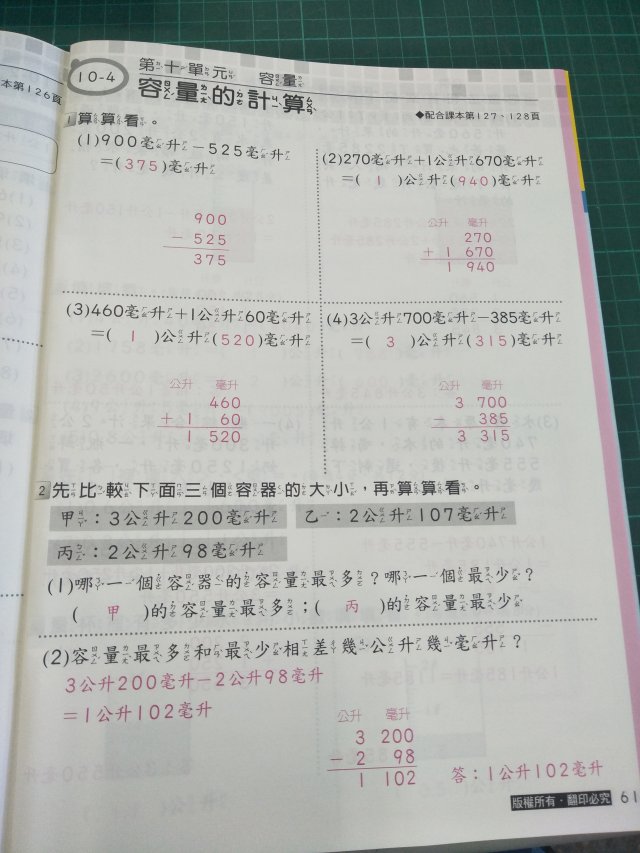 本第126頁
10-4
第十單元 容量
容量的計算
◆配合課本第127、128頁
1 算算看。
(1)900毫升－525毫升
＝(375)毫升
900
－ 525
375
(2)270毫升＋1公升670毫升
＝( 1 )公升(940)毫升
公升 毫升
270
＋ 1 670
1 940
(3)460毫升＋1公升60毫升
＝( 1 )公升(520)毫升
公升 毫升
460
＋ 1 60
1 520
(4)3公升700毫升－385毫升
＝( 3 )公升(315)毫升
公升 毫升
3 700
－ 385
3 315
2 先比較下面三個容器的大小，再算算看。
甲：3公升200毫升 乙：2公升107毫升
丙：2公升98毫升
(1)哪一個容器的容量最多？哪一個最少？
( 甲 )的容量最多；( 丙 )的容量最少
(2)容量最多和最少相差幾公升幾毫升？
3公升200毫升－2公升98毫升
＝1公升102毫升
公升 毫升
3 200
－ 2 98
1 102
答：1公升102毫升
版權所有・翻印必究 61